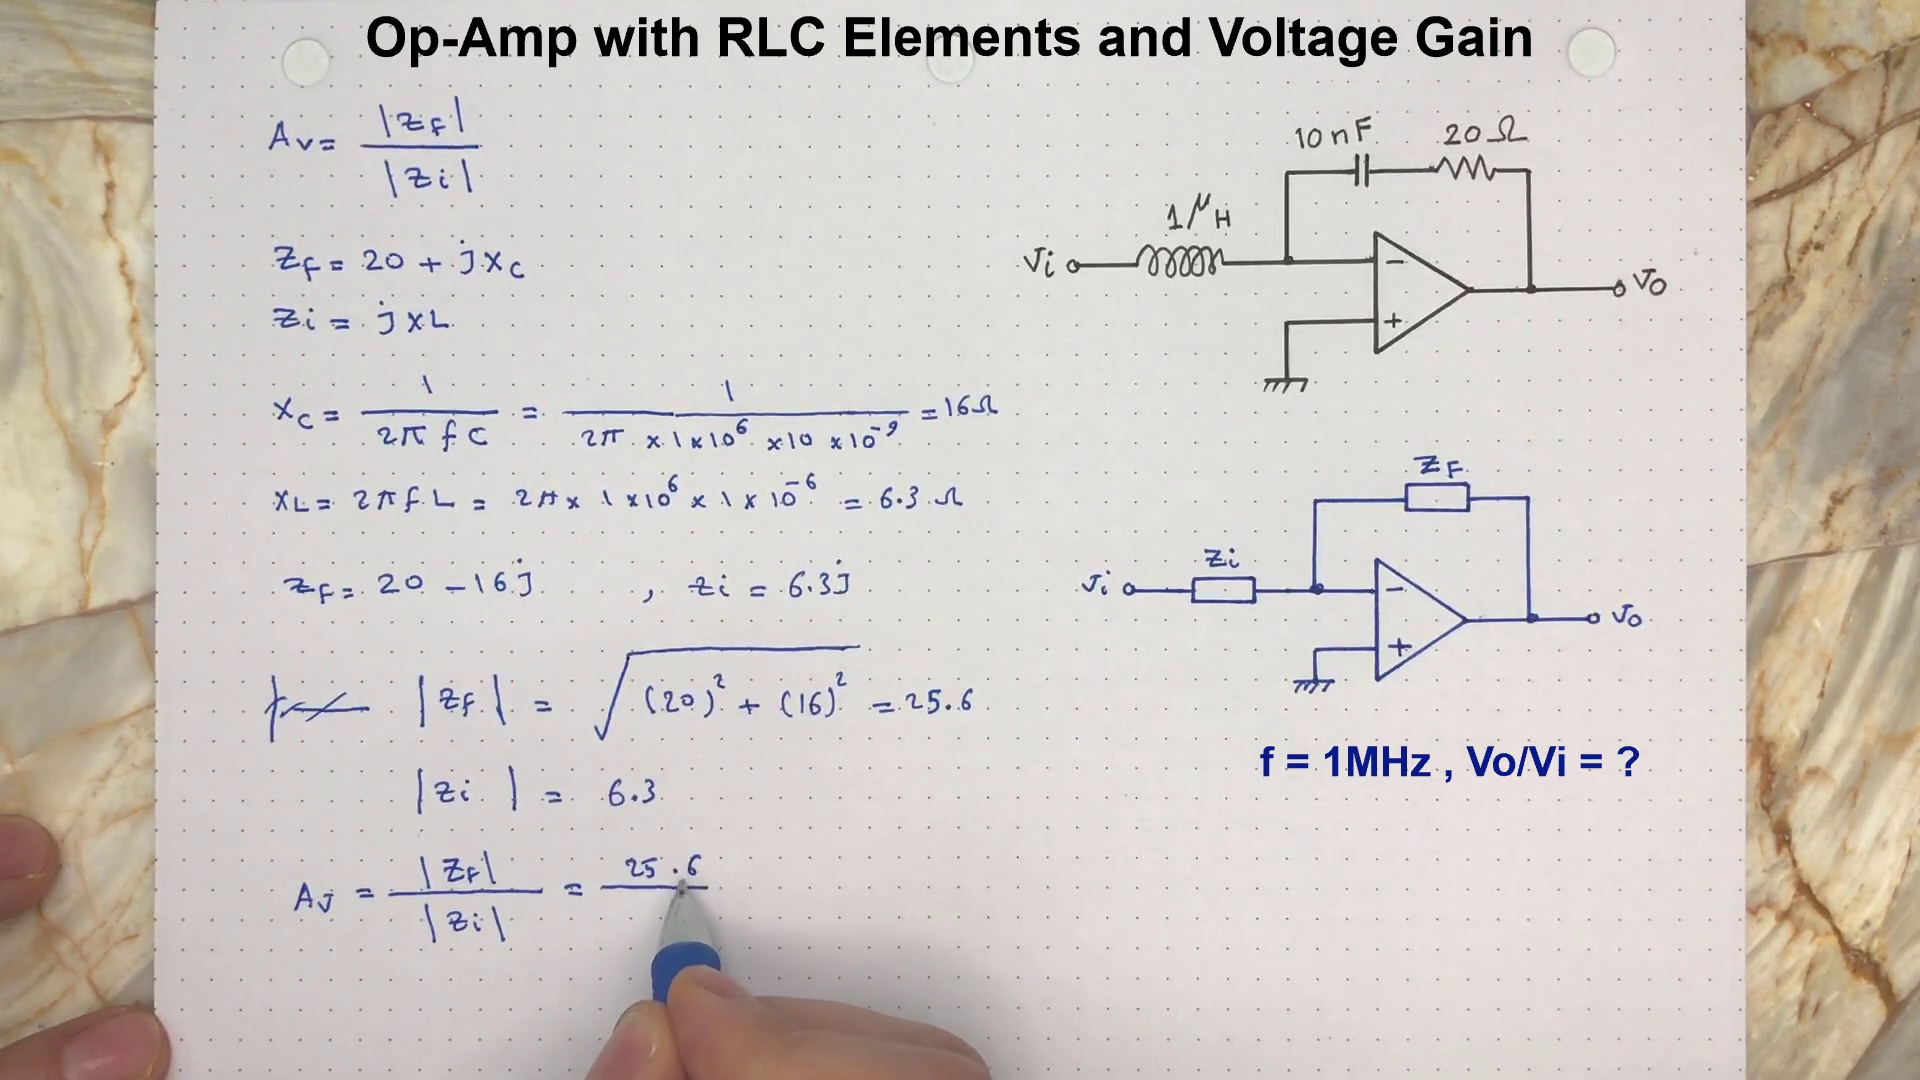 Op-Amp with RLC Elements and Voltage Gain
Av = |ZF| / |Zi|
ZF = 20 + jXC
Zi = jXL
XC = 1 / 2π f C = 1 / 2π × 1×10⁶ × 10 × 10⁻⁹ = 16Ω
XL = 2π f L = 2π × 1 × 10⁶ × 1 × 10⁻⁶ = 6.3 Ω
ZF = 20 - 16j , Zi = 6.3j
|ZF| = √(20)² + (16)² = 25.6
|Zi| = 6.3
Av = |ZF| / |Zi| = 25.6
10nF 20Ω
1μH
Vi
-
+
Vo
ZF
Zi
Vi
-
+
Vo
f = 1MHz , Vo/Vi = ?